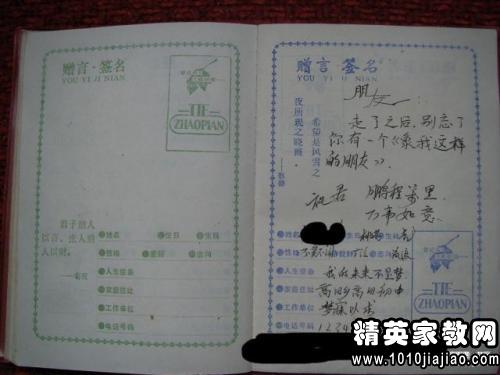 赠言·签名
YOU YI JI NIAN
TIE
ZHAOPIAN
君子赠人
以言，庶人赠
人以财。
——荀况
姓名
生日
生肖
性格
爱好
志向
人生信条
家庭住址
工作单位
电话号码
赠言 签名
YOU YI JI NIAN
希望是风雪之
夜所现之晓霞。
——歌德
朋友:
走了之后，别忘了
你有一个《象我这样
的朋友》.
祝君 鹏程万里
万事如意
TIE
ZHAOPIAN
性格
人生信条
我的未来不是梦
家庭住址
工作单位
梦寐以求
电话号码
1234
精英家教网
www.1010jiajiao.com